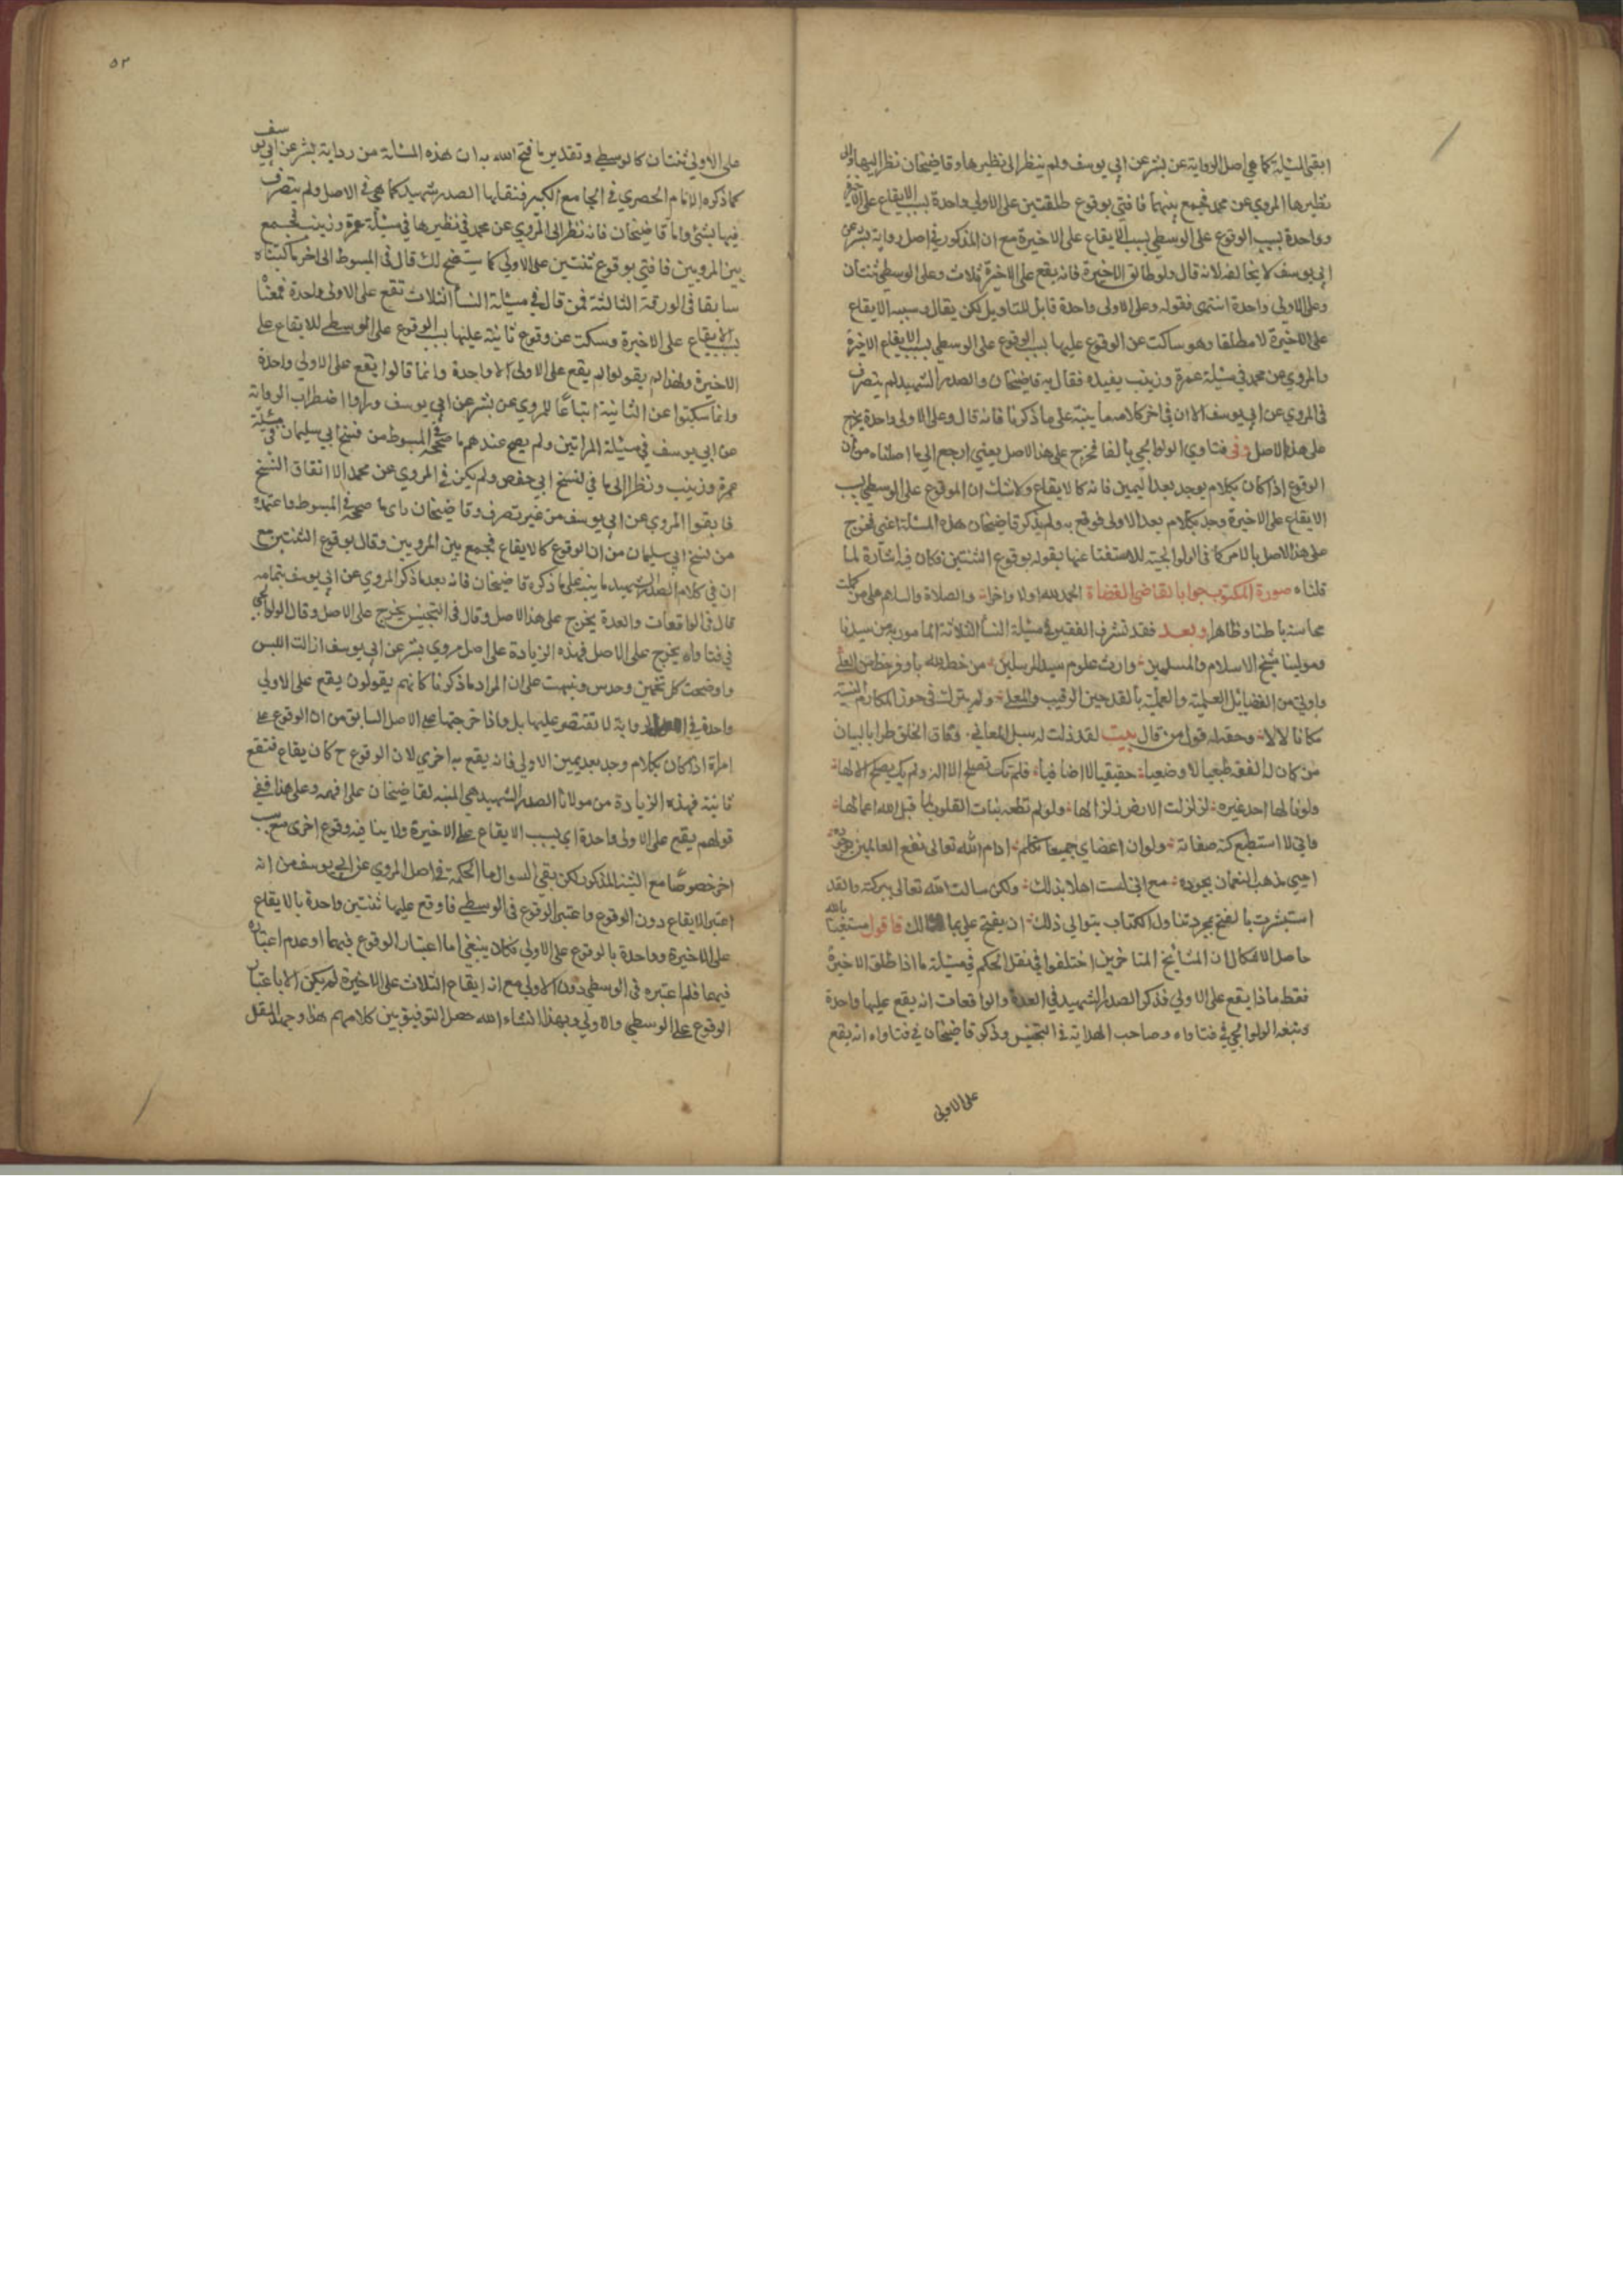 ابقى المسئلة كما هي اصل الرواية عن بشر عن ابي يوسف ولم ينظر الى نظيرها وقاضيخان نظر اليها والى
نظيرها المروي عن محمد فجمع بينهما فافتى بوقوع طلقتين على الاولى واحدة بسبب الايقاع على الاخيرة
وواحدة بسبب الوقوع على الوسطى بسبب الايقاع على الاخيرة مع ان المذكور في اصل رواية بشر عن
ابي يوسف لا يخالفه لانه قال ولو طالق الاخيرة فانه يقع على الاخيرة ثلاث وعلى الوسطى ثنتان
وعلى الاولى واحدة انتهى فقوله وعلى الاولى واحدة قابل للتاويل لكن يقال وسببه الايقاع
على الاخيرة لا مطلقا وهو ساكت عن الوقوع عليها بسبب الوقوع على الوسطى بسبب الايقاع الاخيرة
والمروي عن محمد في مسئلة عمرة وزينب يفيده فقال به قاضيخان والصدر الشهيد لم يتصرف
في المروي عن ابي يوسف الا ان في اخر كلامه ما ينبه على ما ذكرنا فانه قال وعلى الاولى واحدة يخرج
على هذا الاصل وفي فتاوي الولوالجي بالفا فخرج على هذا الاصل يعني ارجع الى ما اصلناه من ان
الوقوع اذا كان بكلام يوجد بعد اليمين فانه كالايقاع ولا شك ان الوقوع على الوسطى بسبب
الايقاع على الاخيرة وجد بكلام بعد الاولى فوقع به ولم يذكر قاضيخان هذه المسئلة اعني فخرج
على هذا الاصل بالامر كما في الولوالجية للاستغنا عنها بقوله بوقوع الثنتين فكان فيه اشارة لما
قلناه صورة المكتوب جوابا لقاضي القضاة الحمد لله اولا واخرا والصلاة والسلام على من كملت
محاسنه باطنا وظاهرا وبعد فقد تشرف الفقير في مسئلة النسأ الثلاثة المامور به من سيدنا
ومولينا شيخ الاسلام والمسلمين وارث علوم سيد المرسلين من خصه الله باوفر حظ من العلى
واوتي من الفضائل العلمية والعملية بالقدحين الرقيب والمعلى ولم يترك في حوز المكارم السنية
مكانا لا لا وحق له قول من قال بيت لقد ذلت له سبل المعاني وفاق الخلق طرا بالبيان
من كان له الفقه طبعيا لا وضعيا حقيقيا لا اضافيا فلم تك تصلح الا له ولم يك يصلح الا لها
ولو نالها احد غيره لزلزلت الارض زلزالها ولو لم تطعه بنات القلوب لما قبل الله اعمالها
فاني لا استطيع كنه صفاته ولو ان اعضاي جميعا تكلم ادام الله تعالى نفع العالمين بوجوده
احيى مذهب النعمان بجوده مع اني لست اهلا بذلك ولكن سالت الله تعالى ببركته والقد
استبشرت بالفتح بمجرد تناول الكتاب بتوالي ذلك ان يفتح علي بما هنالك فاقول مستعينا بالله
حاصل الاشكال ان المشايخ المتاخرين اختلفوا في نقل الحكم في مسئلة ما اذا طلق الاخيرة
فقط ماذا يقع على الاولى فذكر الصدر الشهيد في العدة والواقعات انه يقع عليها واحدة
وتبعه الولوالجي في فتاواه وصاحب الهداية في التجنيس وذكر قاضيخان في فتاواه انه يقع
على الاولى
٥٢
على الاولى ثنتان كالوسطى وتقدير ما فتح الله به ان هذه المسئلة من رواية بشر عن ابي يوسف
كما ذكره الامام الحصري في الجامع الكبير فنقلها الصدر شهيد كما هي في الاصل ولم يتصرف
فيها بشئ واما قاضيخان فانه نظر الى المروي عن محمد في نظيرها في مسئلة عمرة وزينب فجمع
بين المرويين فافتى بوقوع ثنتين على الاولى كما يتضح لك قال في المبسوط الى اخر ما كتبناه
سابقا في الورقة الثالثة فمن قال في مسئلة النسأ الثلاث تقع على الاولى واحدة فمعناه
بسبب الايقاع على الاخيرة وسكت عن وقوع ثانية عليها بسبب الوقوع على الوسطى للايقاع على
الاخيرة ولهذا لم يقولوا لم يقع على الاولى الا واحدة وانما قالوا يقع على الاولى واحدة
وانما سكتوا عن الثانية اتباعا للمروي عن بشر عن ابي يوسف وراوا اضطراب الرواية
عن ابي يوسف في مسئلة المراتين ولم يصح عندهم ما صححه في المبسوط من نسخ ابي سليمان في مسئلة
عمرة وزينب ونظرا الى ما في نسخ ابي حفص ولم يكن في المروي عن محمد الا اتفاق النسخ
فابقوا المروي عن ابي يوسف من غير تصرف وقاضيخان راى ما صححه في المبسوط واعتمده
من نسخ ابي سليمان من ان الوقوع كالايقاع فجمع بين المرويين وقال بوقوع الثنتين مع
ان في كلام الصدر الشهيد ما ينبه على ما ذكره قاضيخان فانه بعد ما ذكر المروي عن ابي يوسف بتمامه
قال في الواقعات والعدة يخرج على هذا الاصل وقال في التجنيس يخرج على الاصل وقال الولوالجي
في فتاواه يخرج على الاصل فهذه الزيادة على اصل مروي بشر عن ابي يوسف ازالت اللبس
واوضحت كل تخمين وحدس ونبهت على ان المراد ما ذكرنا كانهم يقولون يقع على الاولى
واحدة في الرواية لا تقتصر عليها بل واذا خرجتها على الاصل السابق من ان الوقوع على
امراة اذا كان بكلام وجد بعد يمين الاولى فانه يقع به اخرى لان الوقوع ح كان يقاع فتقع
ثانية فهذه الزيادة من مولانا الصدر الشهيد هي المنبه لقاضيخان على فهمه وعلى هذا ففي
قولهم يقع على الاولى واحدة اي بسبب الايقاع على الاخيرة ولا ينافيه وقوع اخرى مع سبب
اخر خصوصا مع التنبه المذكور لكن بقي السوال ما الحكمة في اصل المروي عن ابي يوسف من انه
اعتبر الايقاع دون الوقوع واعتبر الوقوع في الوسطى فاوقع عليها ثنتين واحدة بالايقاع
على الاخيرة وواحدة بالوقوع على الاولى فكان ينبغي اما اعتبار الوقوع فيهما او عدم اعتباره
فيهما فلم اعتبره في الوسطى دون الاولى مع ان ايقاع الثلاث على الاخيرة لم يكن الا باعتبار
الوقوع على الوسطى والاولى وبهذا انشاء الله حصل التوفيق بين كلامهم هذا وجهد المقل